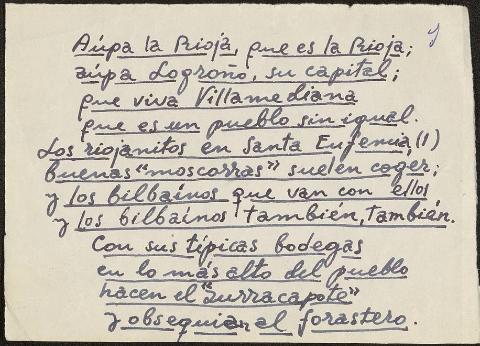 Aúpa la Rioja, que es la Rioja;
aúpa Logroño, su capital;
que viva Villamediana
que es un pueblo sin igual.
Los riojanitos en Santa Eufemia (1)
buenas "moscorras" suelen coger;
y los bilbaínos que van con ellos
y los bilbaínos también, también.
Con sus típicas bodegas
en lo más alto del pueblo
hacen el "zurracapote"
y obsequian al forastero.